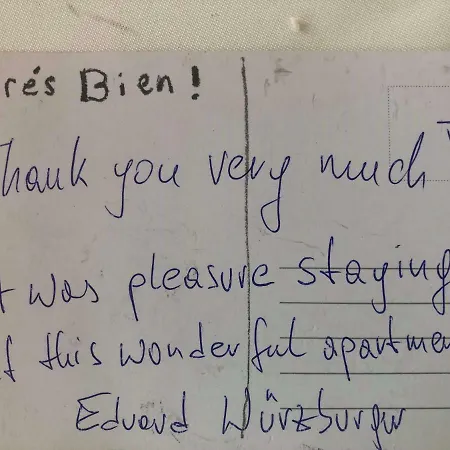 rés Bien!
Thank you very much
t was pleasure staying
at this wonderful apartmen
Edvard Würzburger